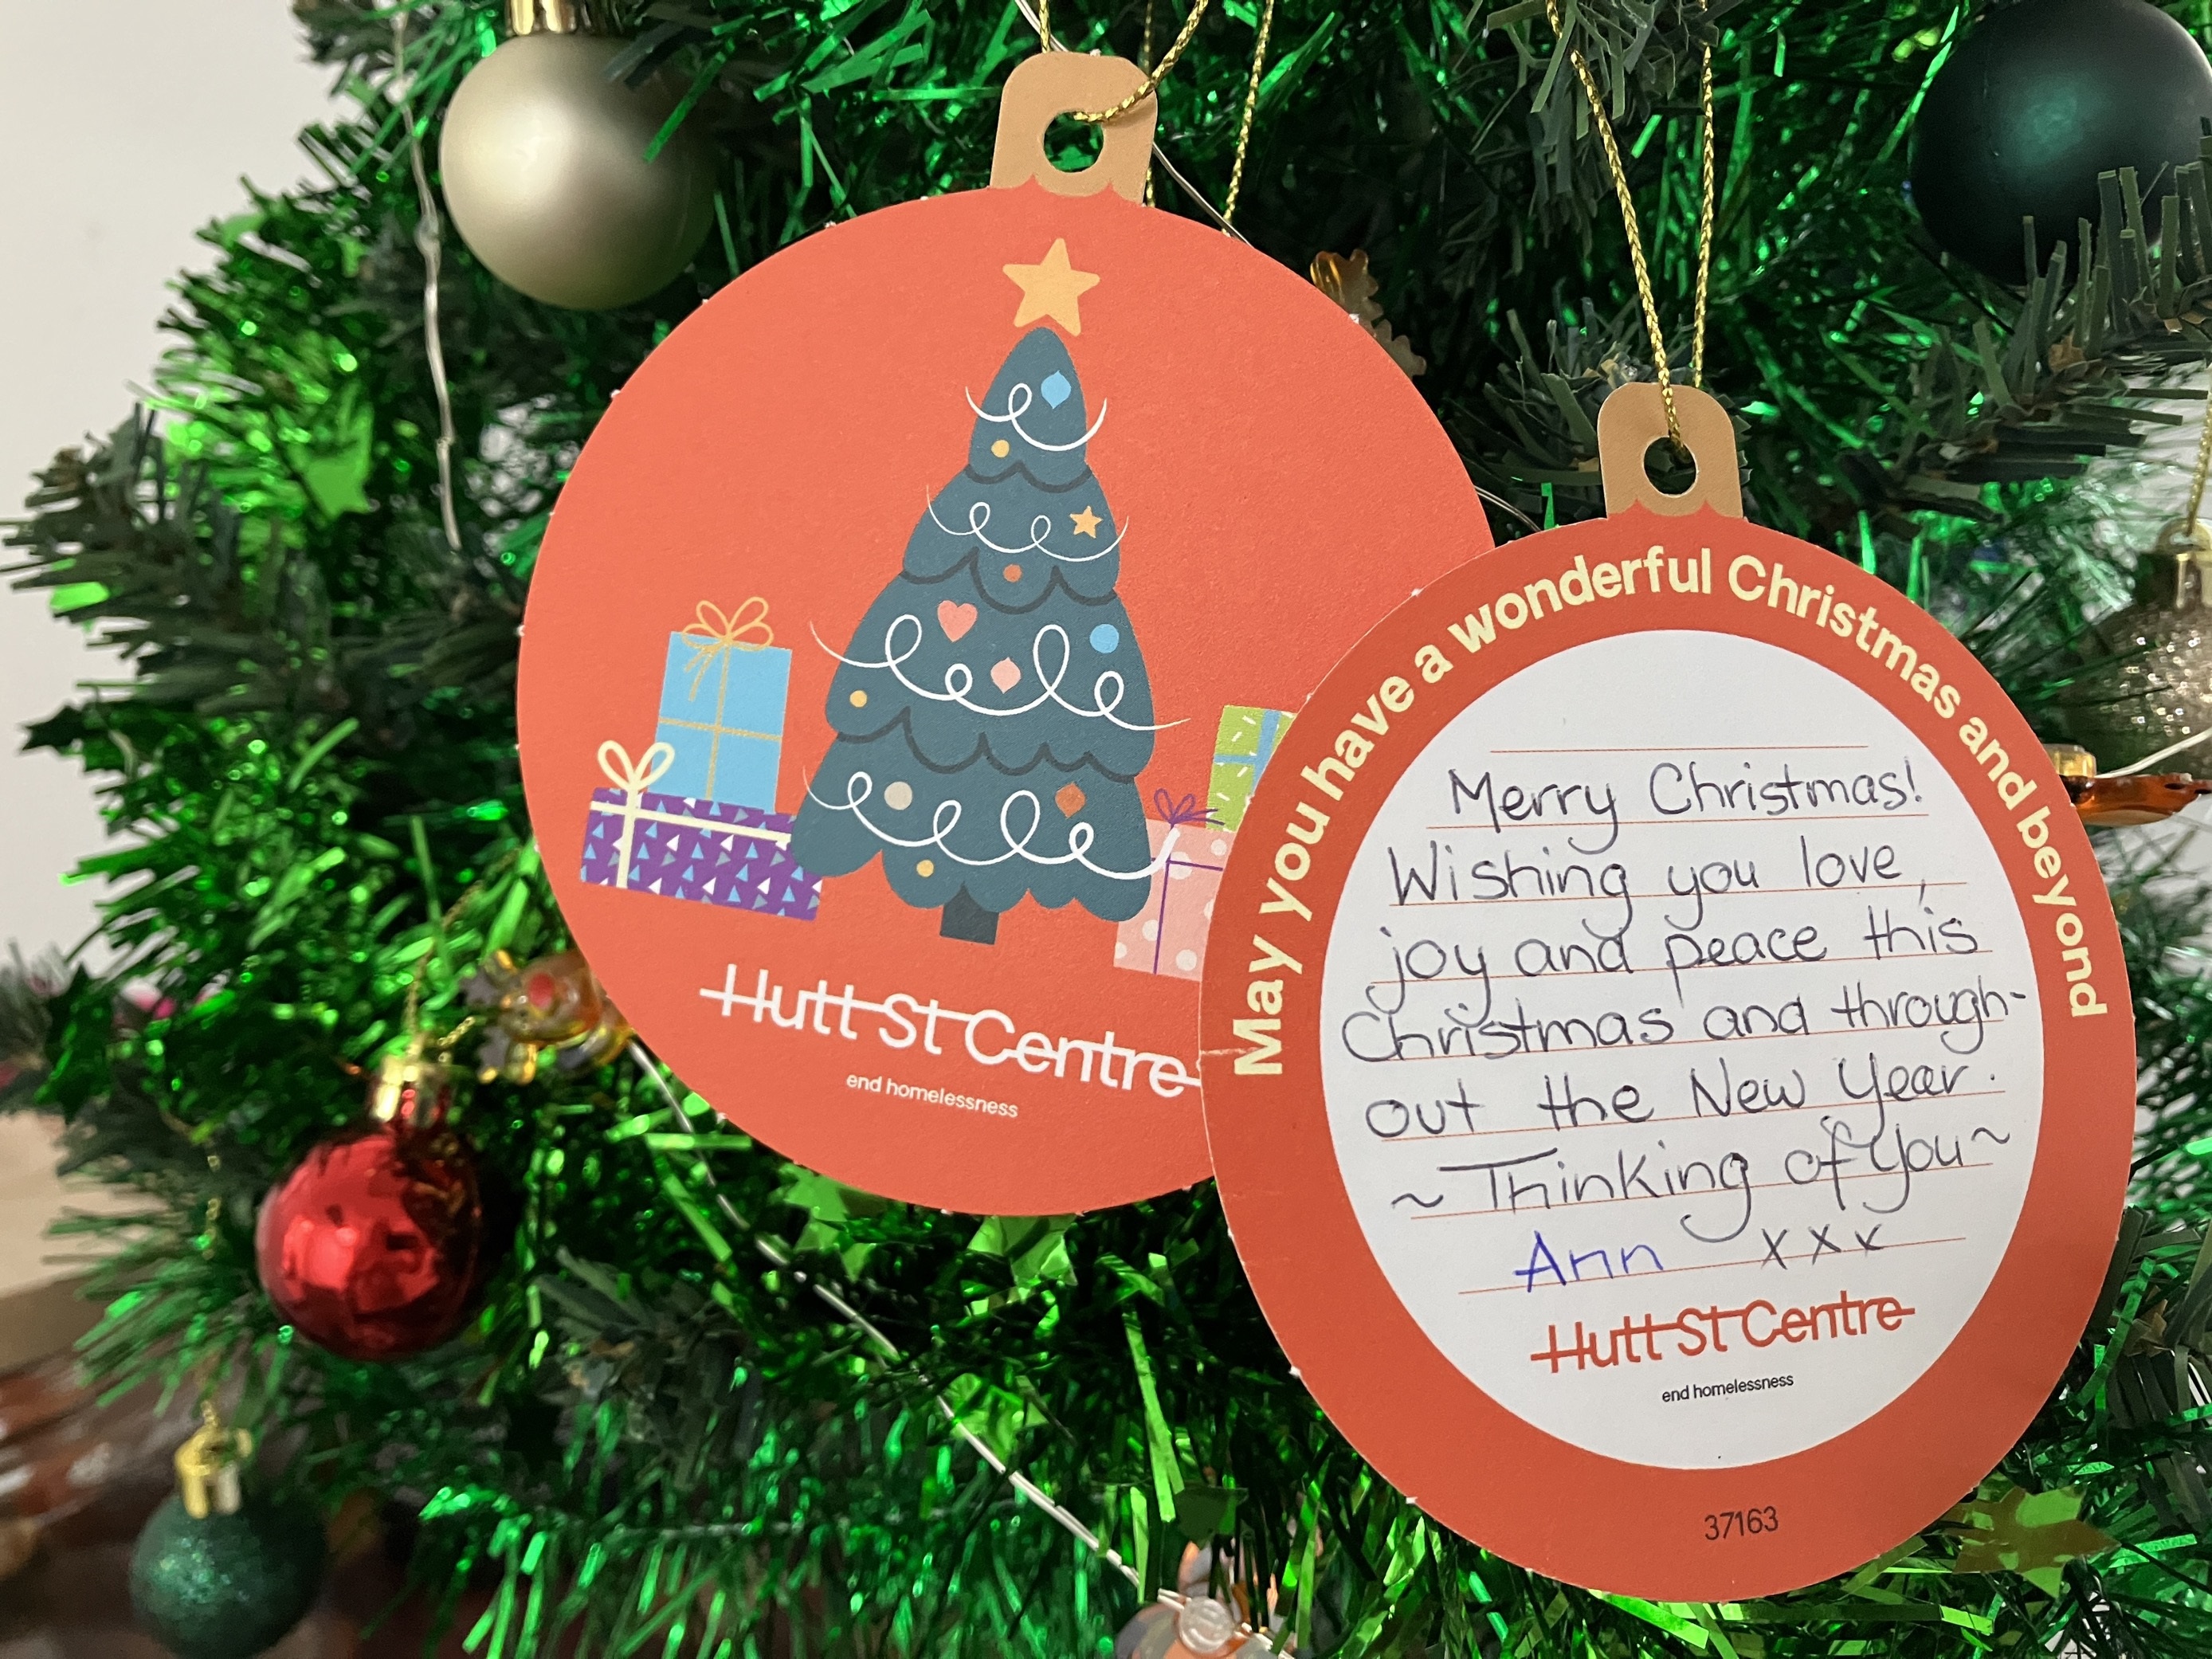 Hutt St Centre
end homelessness
May you have a wonderful Christmas and beyond
Merry Christmas!
Wishing you love,
joy and peace this
Christmas and through-
out the New Year.
~ Thinking of You ~
Ann xxx
Hutt St Centre
end homelessness
37163